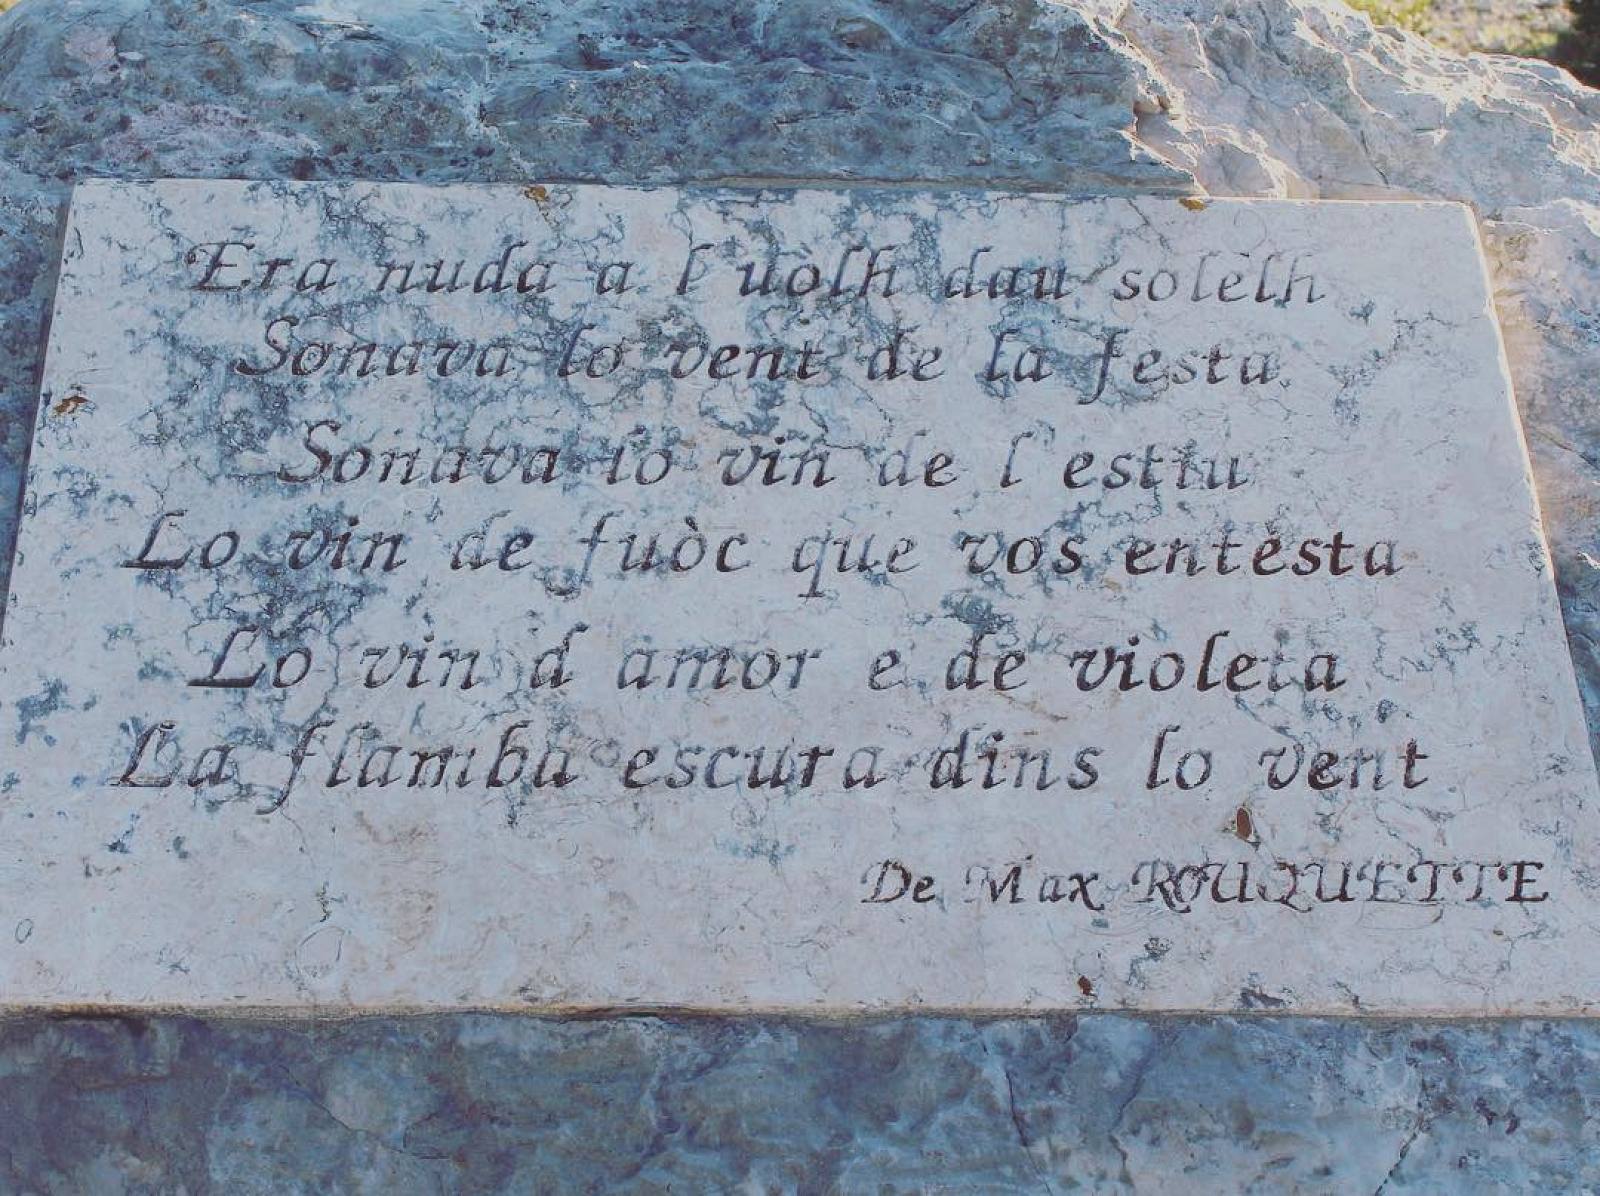 Era nuda a l'uòlh dau solèlh
Sonava lo vent de la festa
Sonava lo vin de l'estiu
Lo vin de fuòc que vos entèsta
Lo vin d'amor e de violeta
La flamba escura dins lo vent
De Max ROUQUETTE